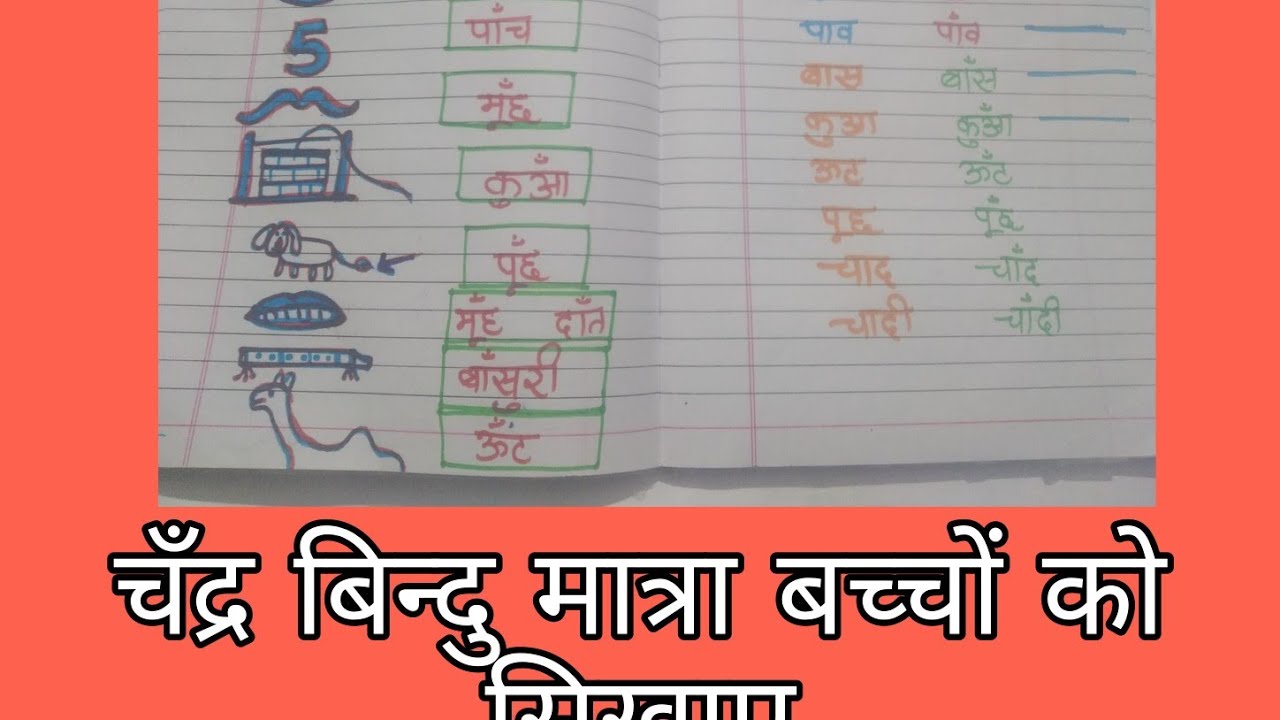 5 पाँच
मूँछ
कुआँ
पूँछ
मूँह दाँत
बाँसुरी
ऊँट
पाव पाँव
बास बाँस
कुआ कुआँ
ऊट ऊँट
पूछ पूँछ
चाद चाँद
चादी चाँदी
चँद्र बिन्दु मात्रा बच्चों को